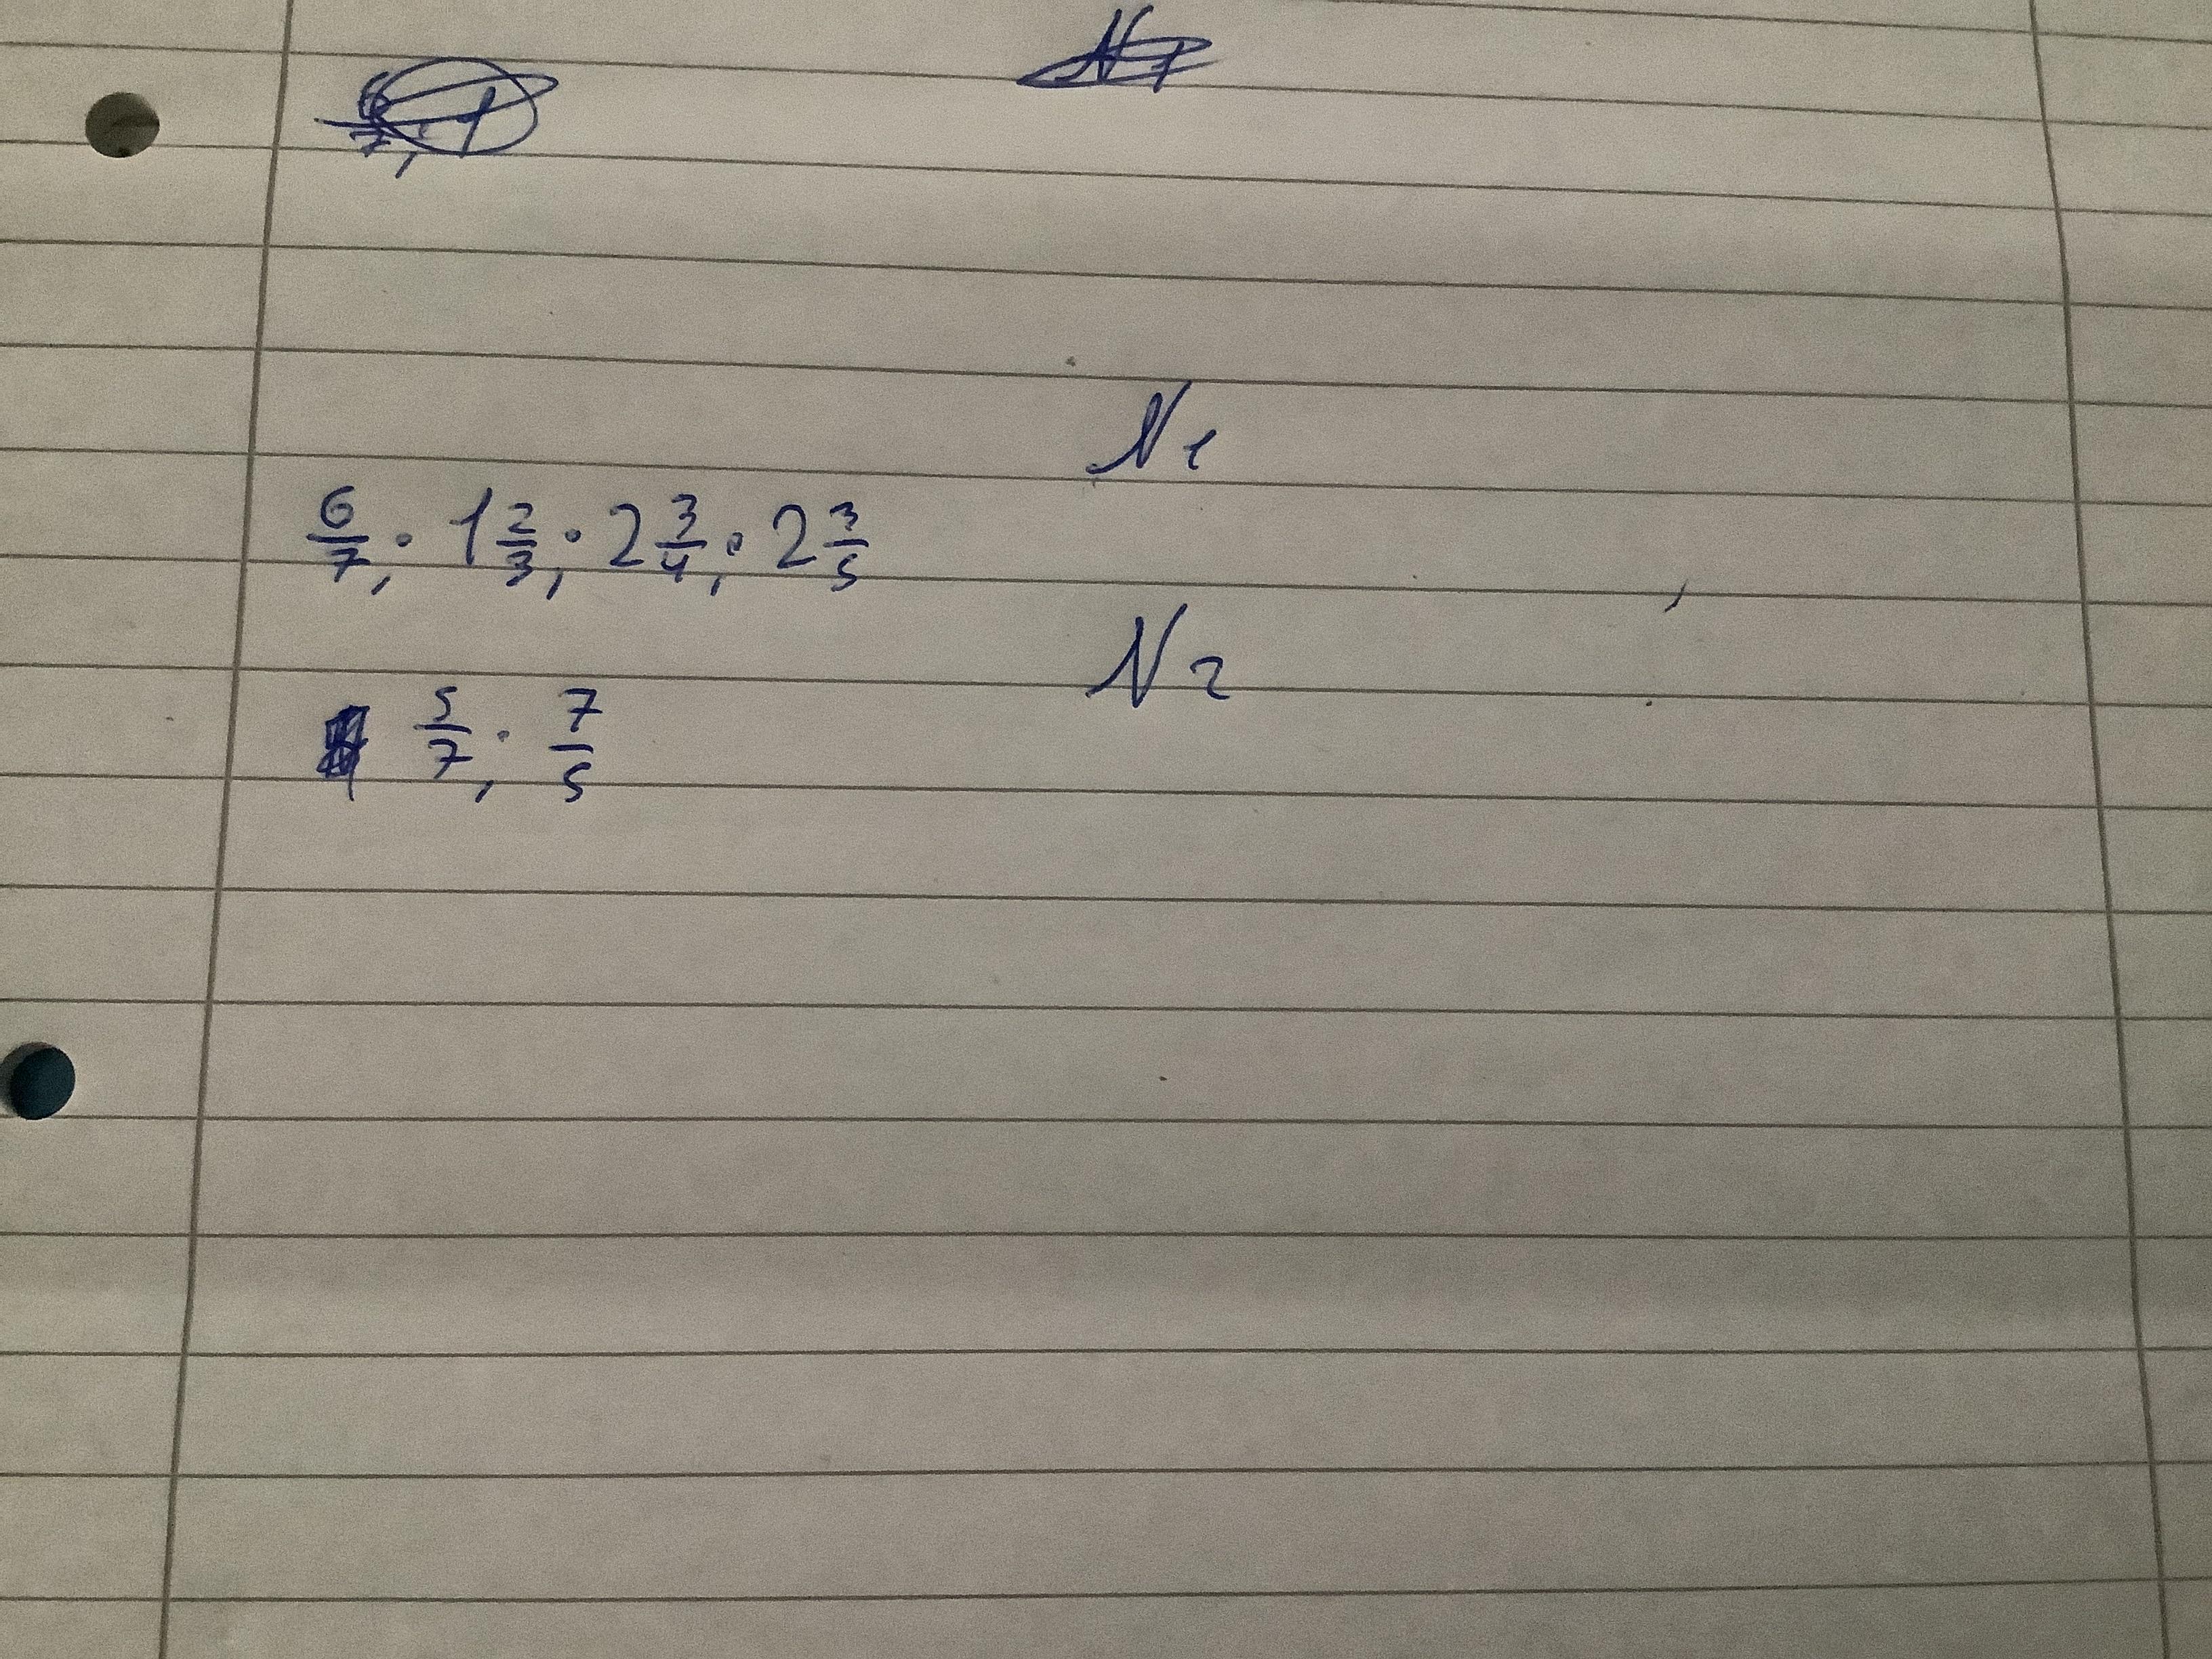 N1
6/7; 1 2/3; 2 3/4; 2 3/5
N2
5/7; 7/5